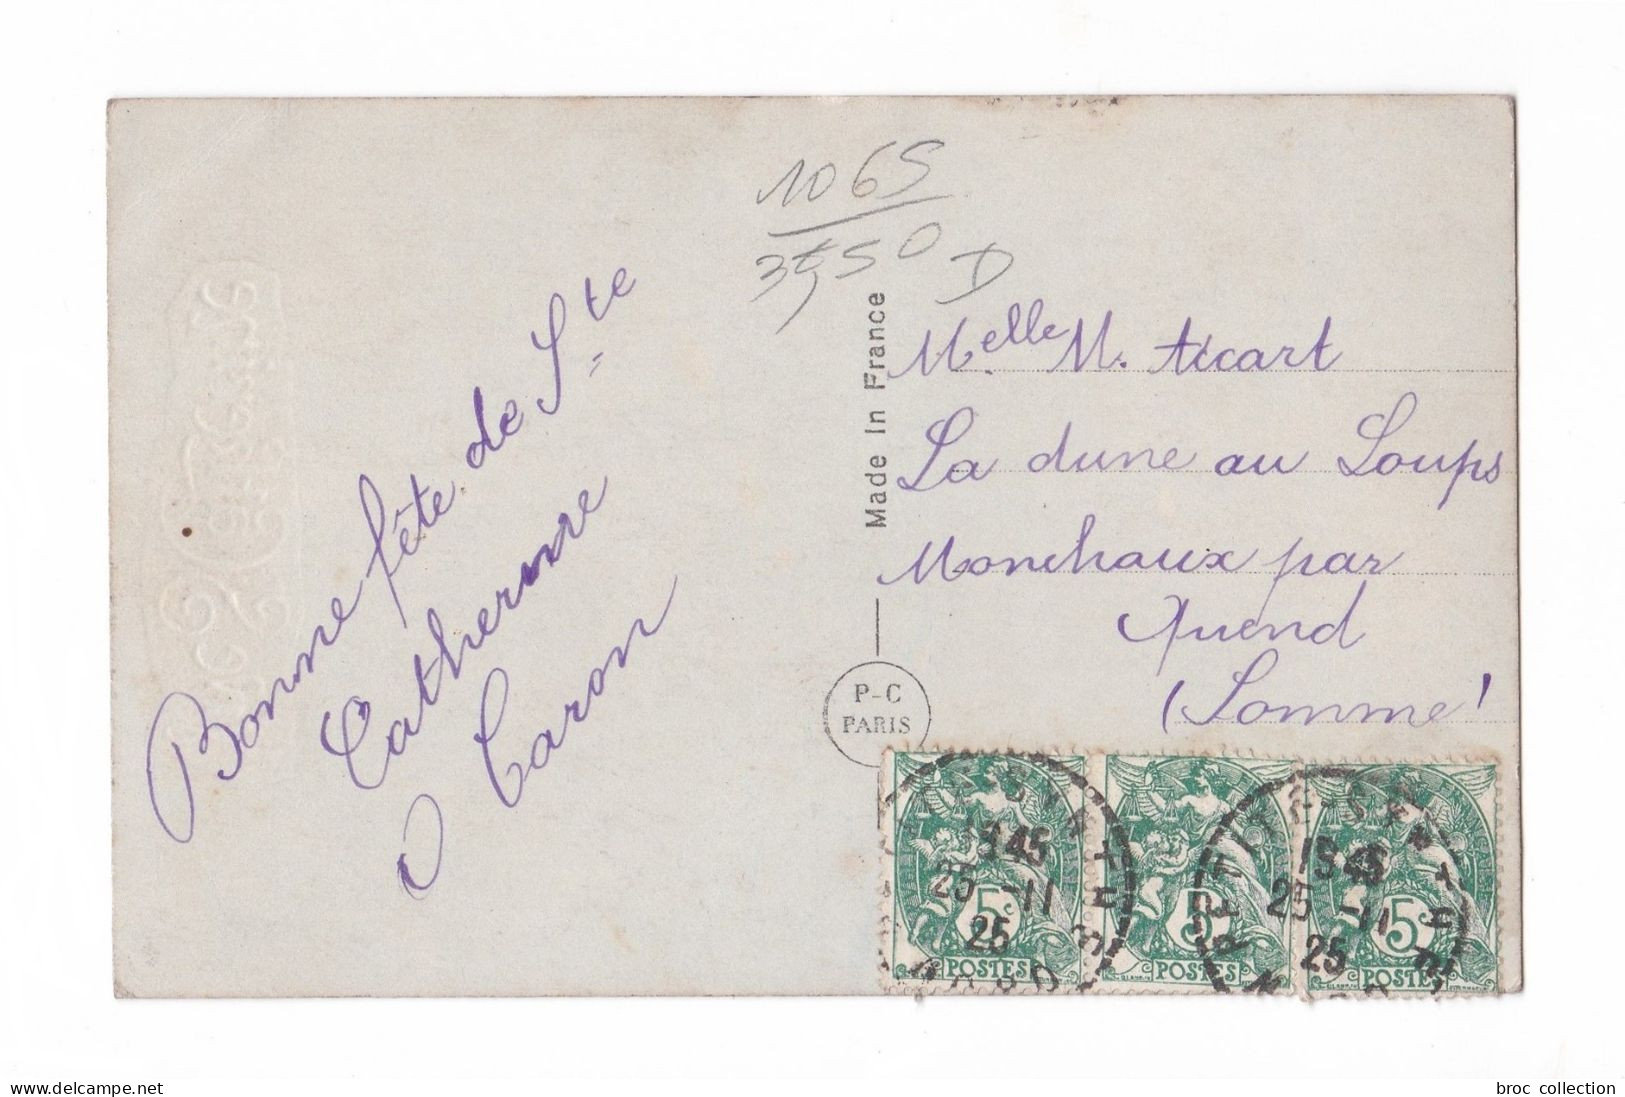 1065
3950 D
Bonne fête de Ste
Catherine
O Caron
Made In France
P-C
PARIS
Melle M. Ticart
La dune au Loups
Monchaux par
Quend
(Somme)
13 45
25 -11
25
5c
POSTES
5c
POSTES
13 45
25 -11
25
5c
POSTES
https://www.delcampe.net
broc_collection